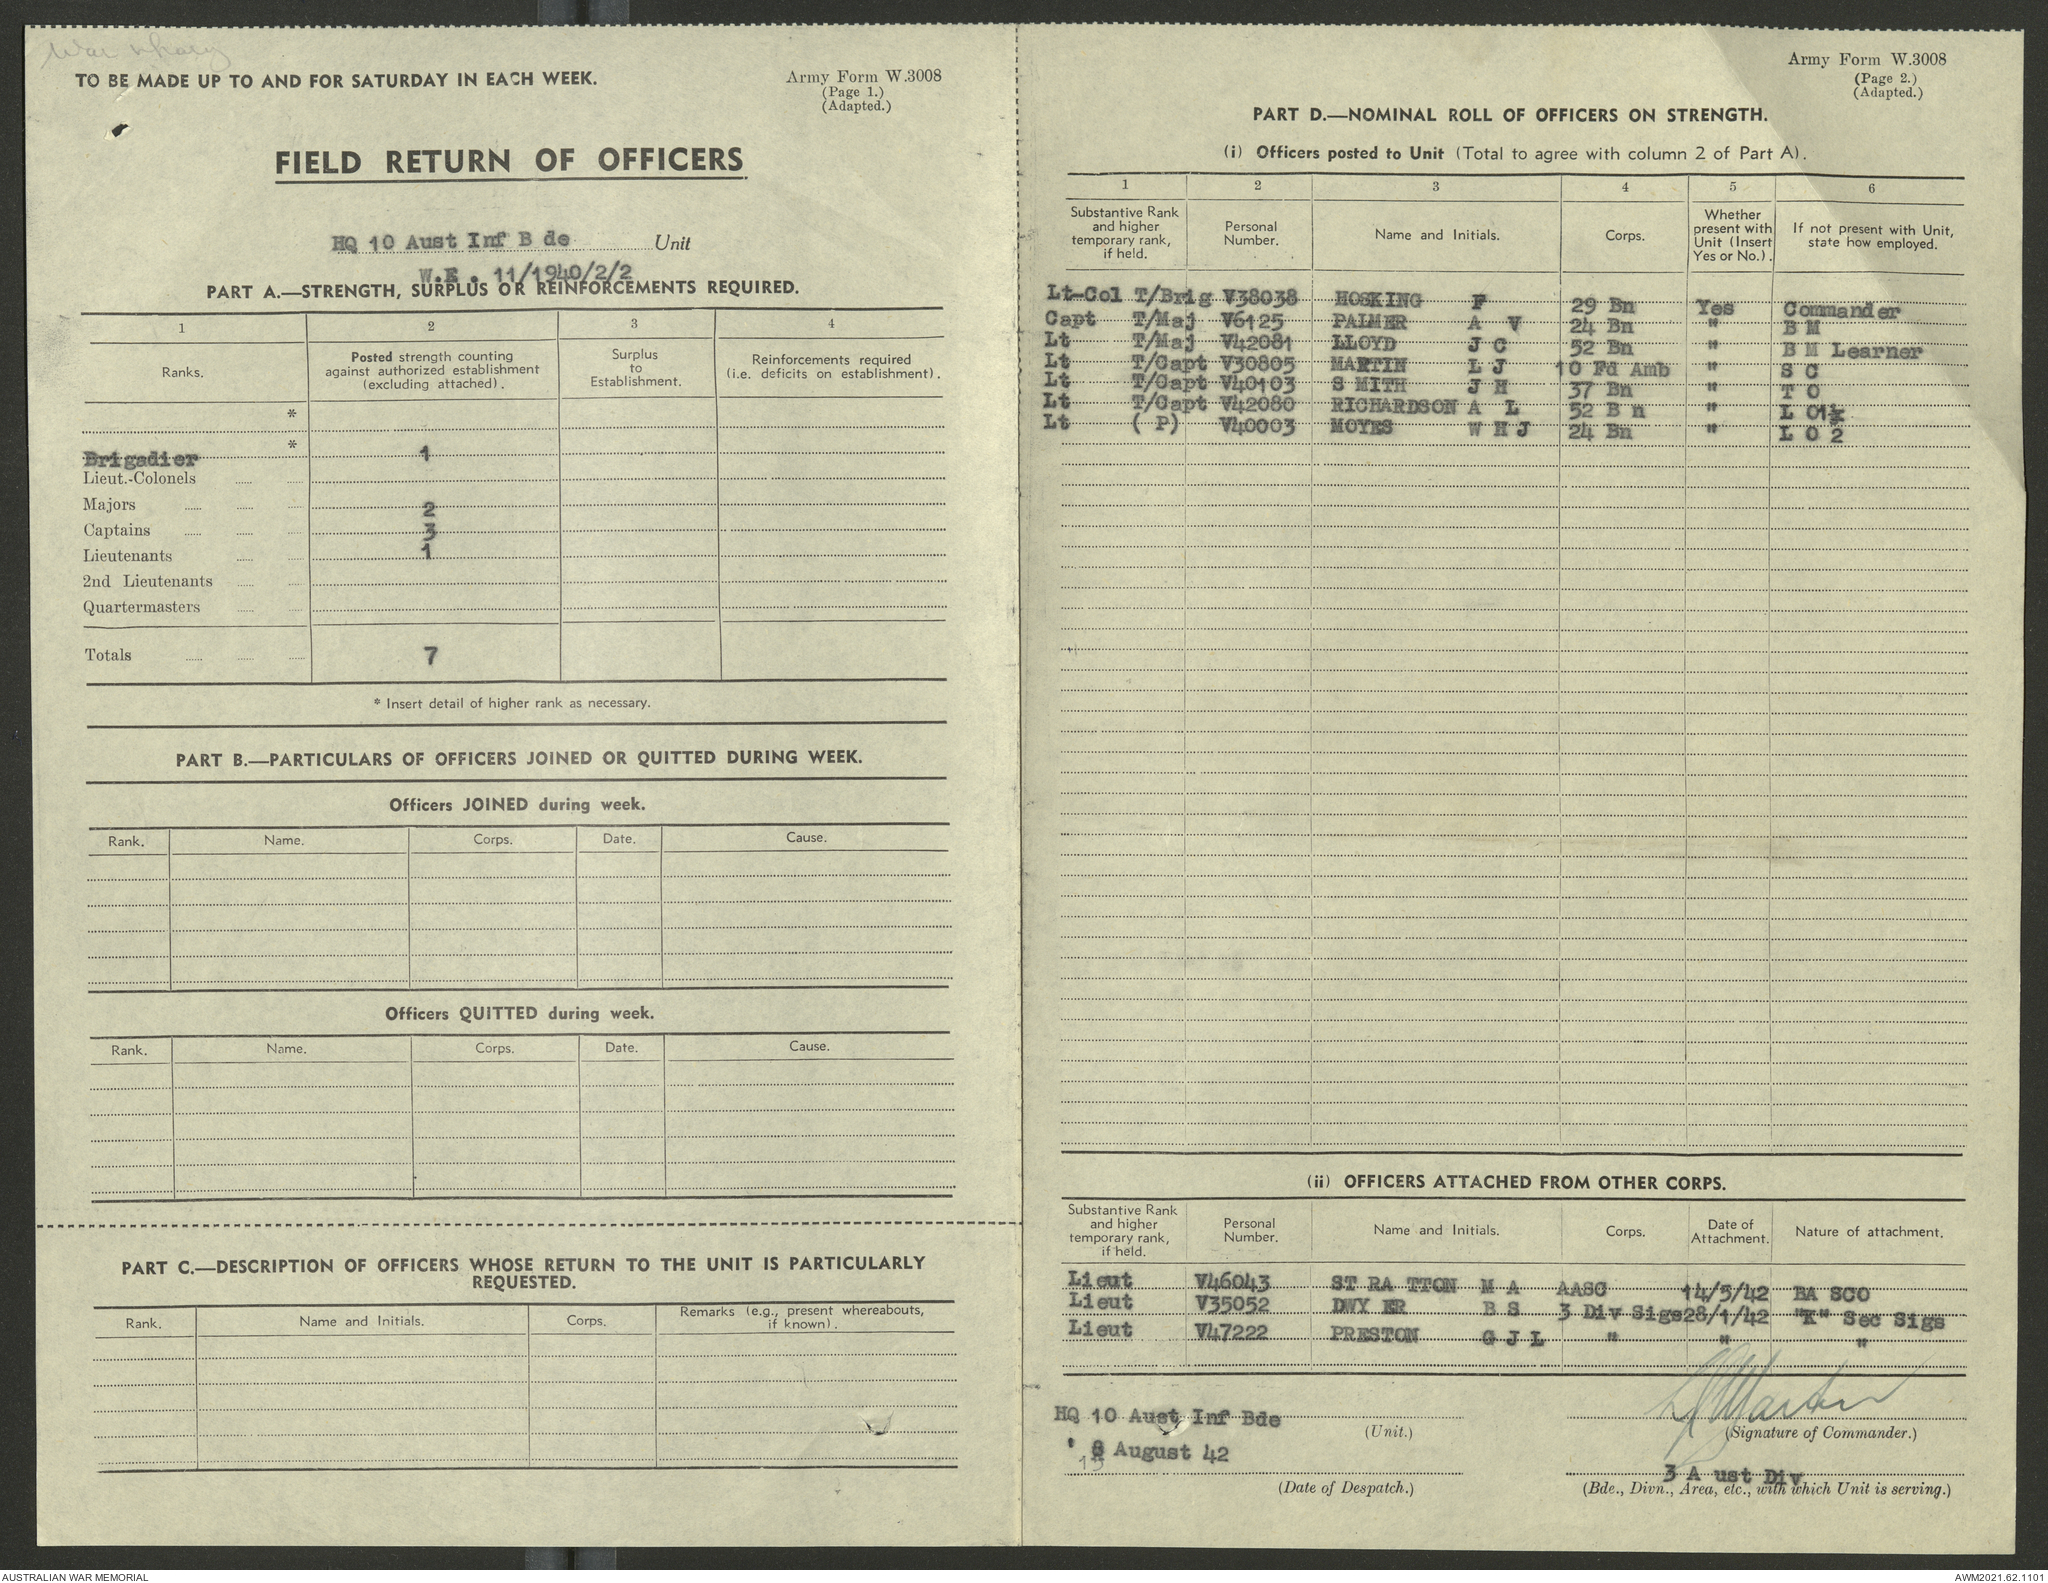 War Diary
TO BE MADE UP TO AND FOR SATURDAY IN EACH WEEK.
Army Form W.3008
(Page 1.)
(Adapted.)
FIELD RETURN OF OFFICERS
HQ 10 Aust Inf B de Unit
W.E. 11/1940/2/2
PART A.—STRENGTH, SURPLUS OR REINFORCEMENTS REQUIRED.
1 2 3 4
Ranks. Posted strength counting against authorized establishment (excluding attached). Surplus to Establishment. Reinforcements required (i.e. deficits on establishment).
*
*
Brigadier 1
Lieut.-Colonels
Majors 2
Captains 3
Lieutenants 1
2nd Lieutenants
Quartermasters
Totals 7
* Insert detail of higher rank as necessary.
PART B.—PARTICULARS OF OFFICERS JOINED OR QUITTED DURING WEEK.
Officers JOINED during week.
Rank. Name. Corps. Date. Cause.
Officers QUITTED during week.
Rank. Name. Corps. Date. Cause.
PART C.—DESCRIPTION OF OFFICERS WHOSE RETURN TO THE UNIT IS PARTICULARLY
REQUESTED.
Rank. Name and Initials. Corps. Remarks (e.g., present whereabouts, if known).
Army Form W.3008
(Page 2.)
(Adapted.)
PART D.—NOMINAL ROLL OF OFFICERS ON STRENGTH.
(i) Officers posted to Unit (Total to agree with column 2 of Part A).
1 2 3 4 5 6
Substantive Rank and higher temporary rank, if held. Personal Number. Name and Initials. Corps. Whether present with Unit (Insert Yes or No.). If not present with Unit, state how employed.
Lt-Col T/Brig V38038 HOSKING F 29 Bn Yes Commander
Capt T/Maj V6125 PALMER A V 24 Bn " B M
Lt T/Maj V42081 LLOYD J C 52 Bn " B M Learner
Lt T/Capt V30805 MARTIN L J 10 Fd Amb " S C
Lt T/Capt V40103 S MITH J H 37 Bn " T O
Lt T/Capt V42080 RICHARDSON A L 52 B n " L O 1
Lt ( P) V40003 MOYES W H J 24 Bn " L O 2
(ii) OFFICERS ATTACHED FROM OTHER CORPS.
Substantive Rank and higher temporary rank, if held. Personal Number. Name and Initials. Corps. Date of Attachment. Nature of attachment.
Lieut V46043 ST RA TTON M A AASC 14/5/42 BA SCO
Lieut V35052 DWY ER B S 3 Div Sigs 28/1/42 "K" Sec Sigs
Lieut V47222 PRESTON G J L " " "
LJ Martin
HQ 10 Aust Inf Bde (Unit.) (Signature of Commander.)
8 August 42
15
3 A ust Div
(Date of Despatch.) (Bde., Divn., Area, etc., with which Unit is serving.)
AUSTRALIAN WAR MEMORIAL AWM2021.62.1101